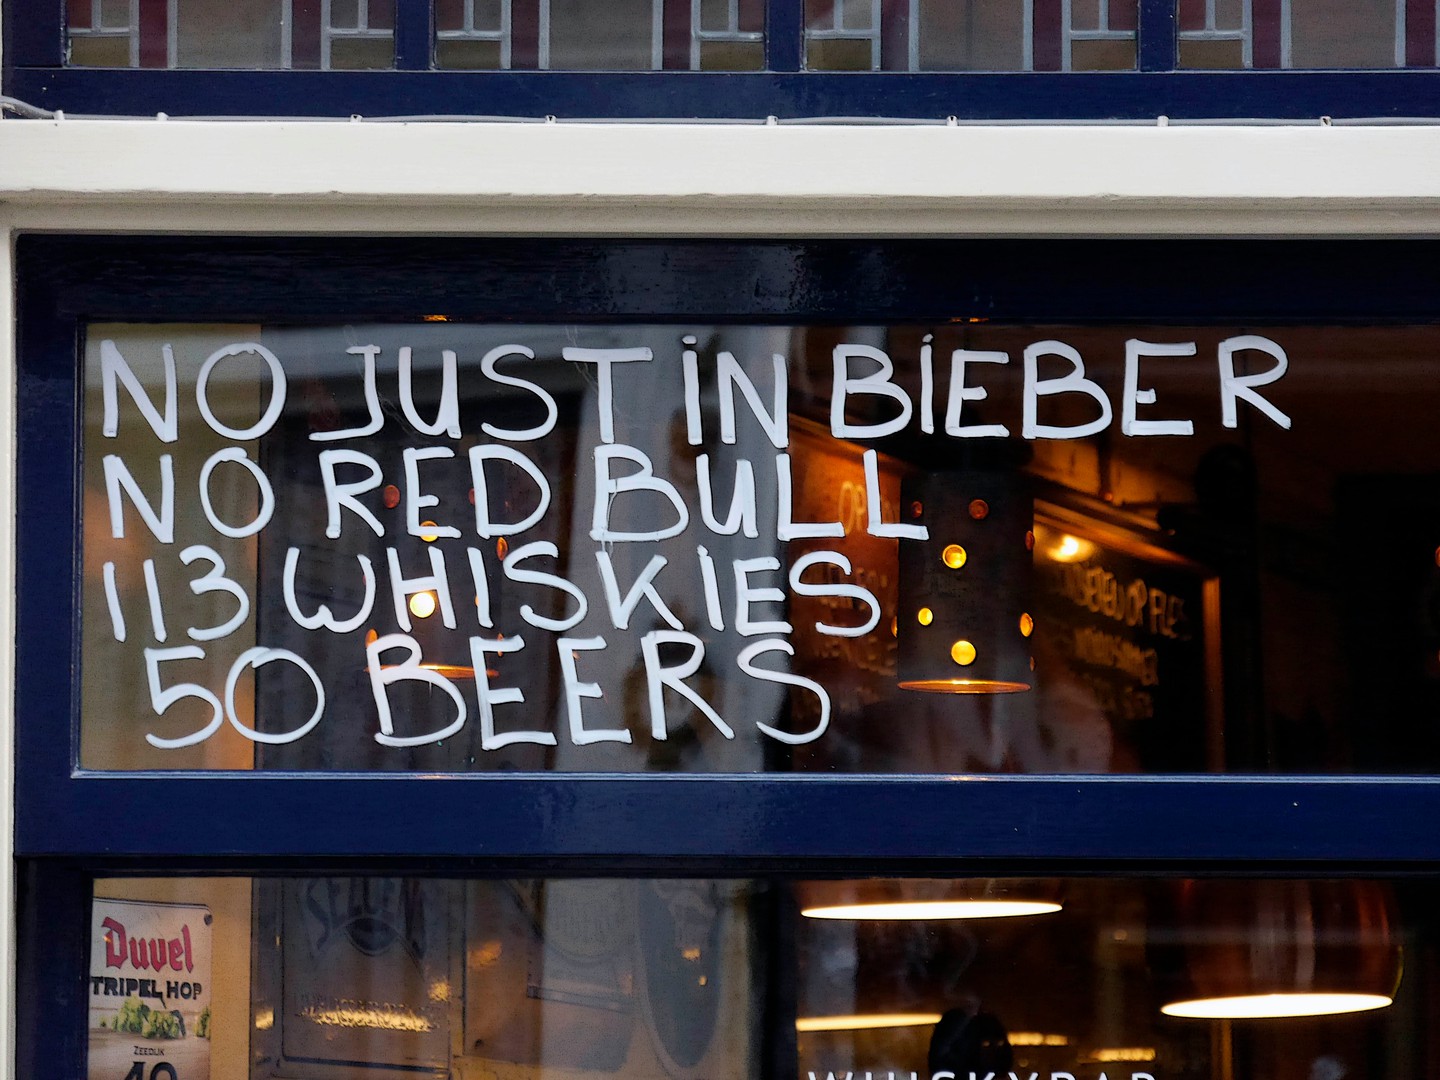 NO JUSTIN BIEBER
NO RED BULL
113 WHISKIES
50 BEERS
Duvel
TRIPEL HOP
ZEEDIJK
49
WHISKYBAR